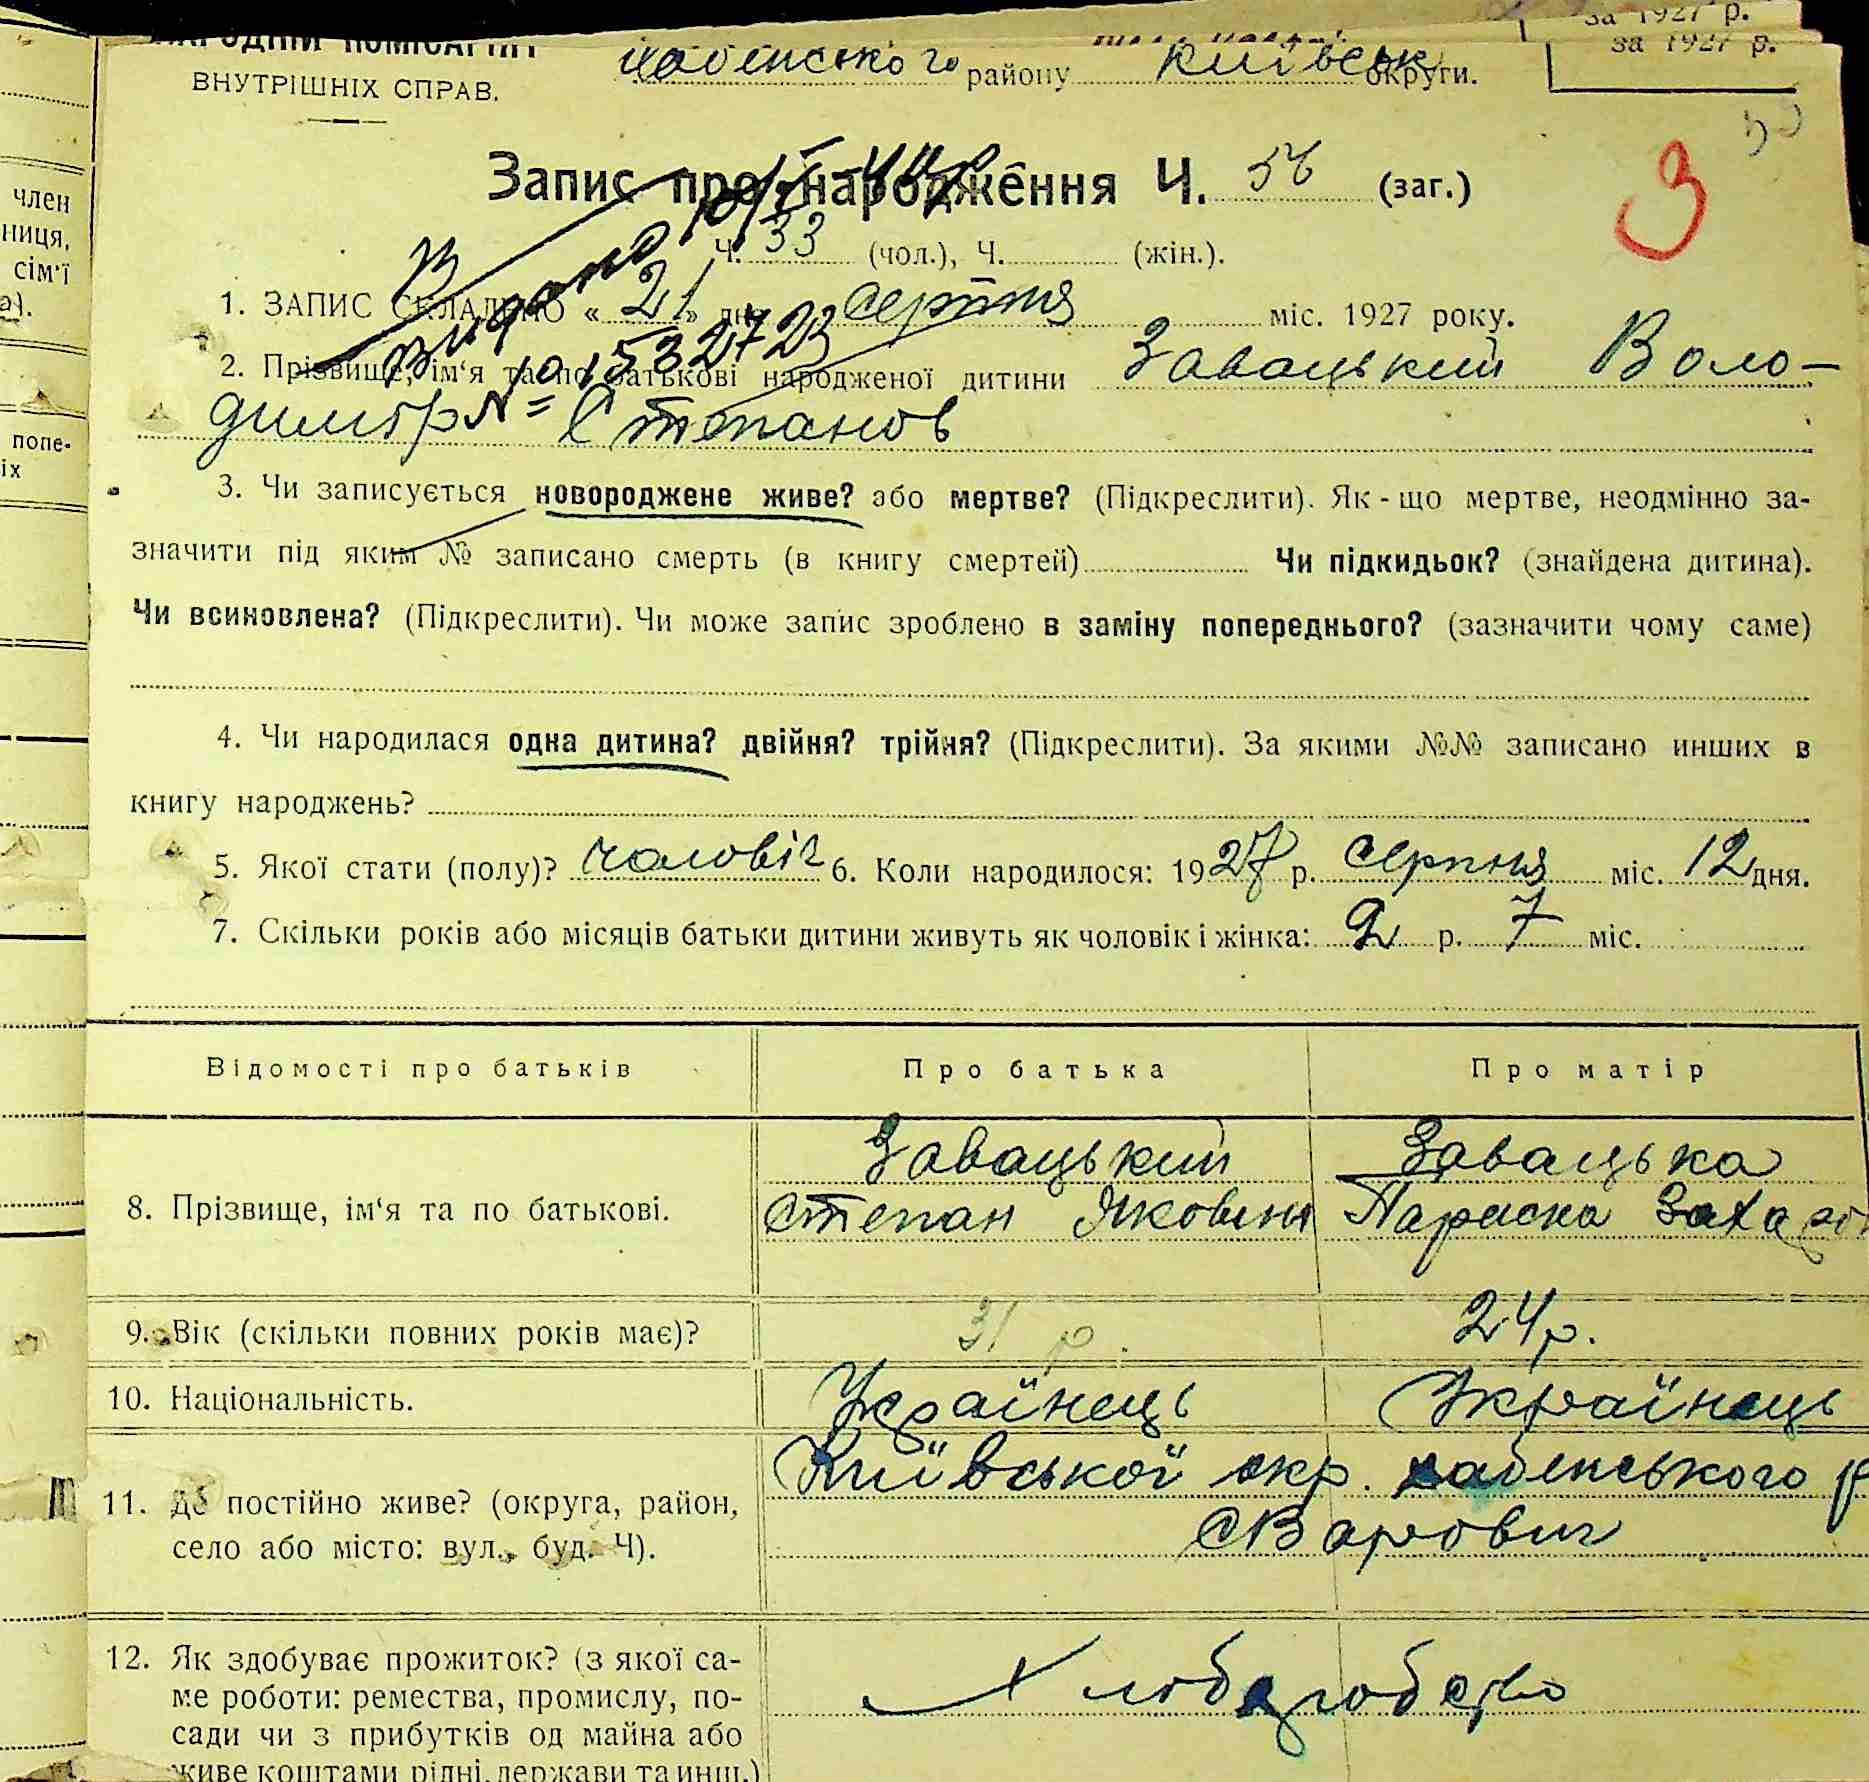 за 1927 р.
за 1927 р.
НАРОДНІЙ КОМІСАРІЯТ
ВНУТРІШНІХ СПРАВ.
Хабенського району Київськ округи.
Запис про народження Ч. 56 (заг.)
3
Ч. 33 (чол.), Ч. (жін.).
Видано
1. ЗАПИС СКЛАДЕНО « 21 » дня серпня міс. 1927 року.
2. Прізвище, ім‘я та по батькові народженої дитини Завацький Воло-
димір Степанов
3. Чи записується новороджене живе? або мертве? (Підкреслити). Як - що мертве, неодмінно за-
значити під яким № записано смерть (в книгу смертей) Чи підкидьок? (знайдена дитина).
Чи всиновлена? (Підкреслити). Чи може запис зроблено в заміну попереднього? (зазначити чому саме)
4. Чи народилася одна дитина? двійня? трійня? (Підкреслити). За якими №№ записано инших в
книгу народжень?
5. Якої стати (полу)? чоловіч 6. Коли народилося: 1927 р. серпня міс. 12 дня.
7. Скільки років або місяців батьки дитини живуть як чоловік і жінка: 2 р. 7 міс.
Відомості про батьків Про батька Про матір
8. Прізвище, ім‘я та по батькові.
Завацький Завацька
Степан Яковин Параска Захаров
9. Вік (скільки повних років має)? 31 р. 24 р.
10. Національність. Українець Українець
11. Де постійно живе? (округа, район, Київської окр. хабенського р
село або місто: вул., буд. Ч). с Варовичі
12. Як здобуває прожиток? (з якої са- Хліборобство
ме роботи: ремества, промислу, по-
сади чи з прибутків од майна або
живе коштами рідні, держави та инш.)
член
ниця,
сім‘ї
а).
попе-
іх